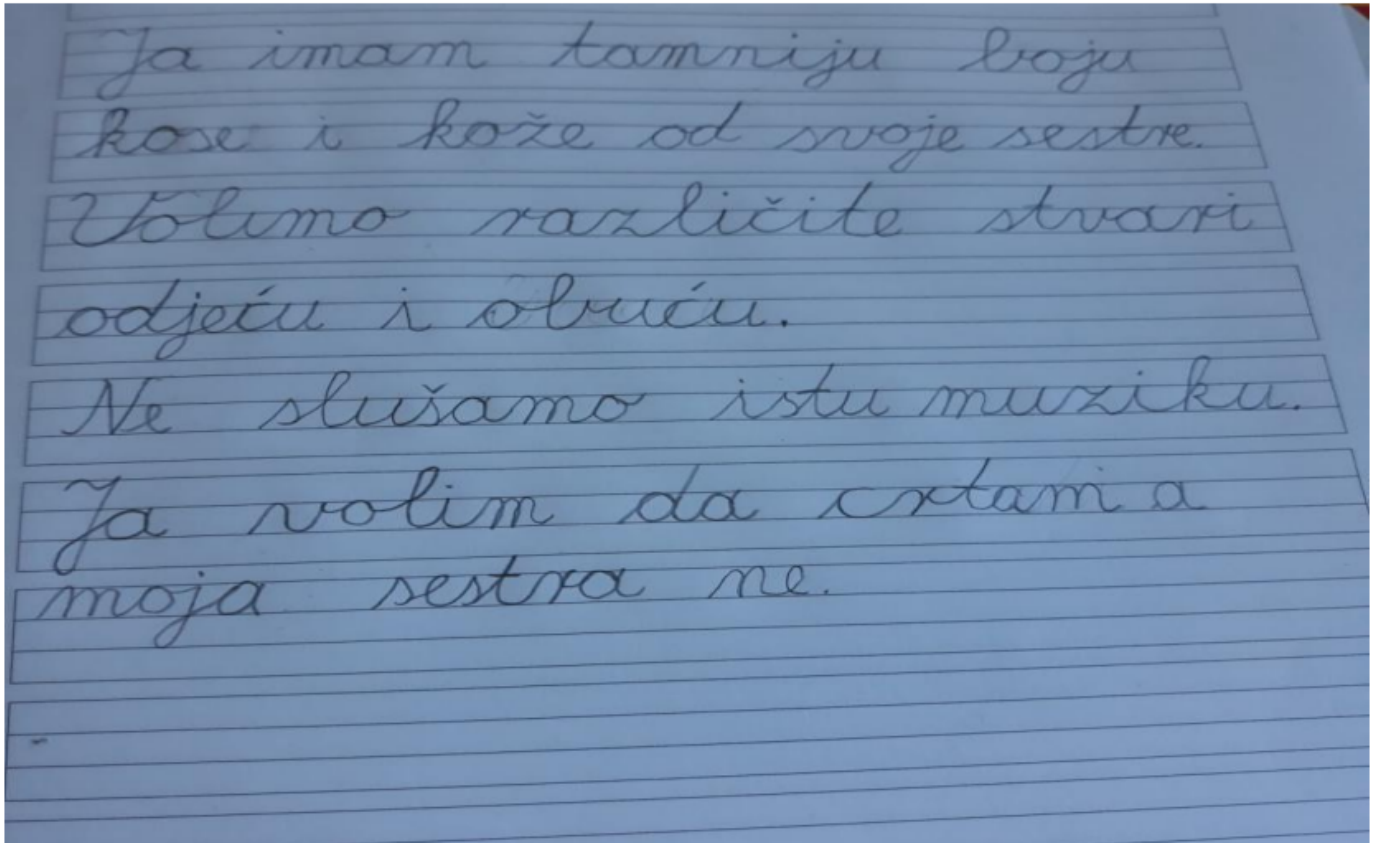 Ja imam tamniju boju
kose i kože od svoje sestre.
Volimo različite stvari
odjeću i obuću.
Ne slušamo istu muziku.
Ja volim da crtam a
moja sestra ne.